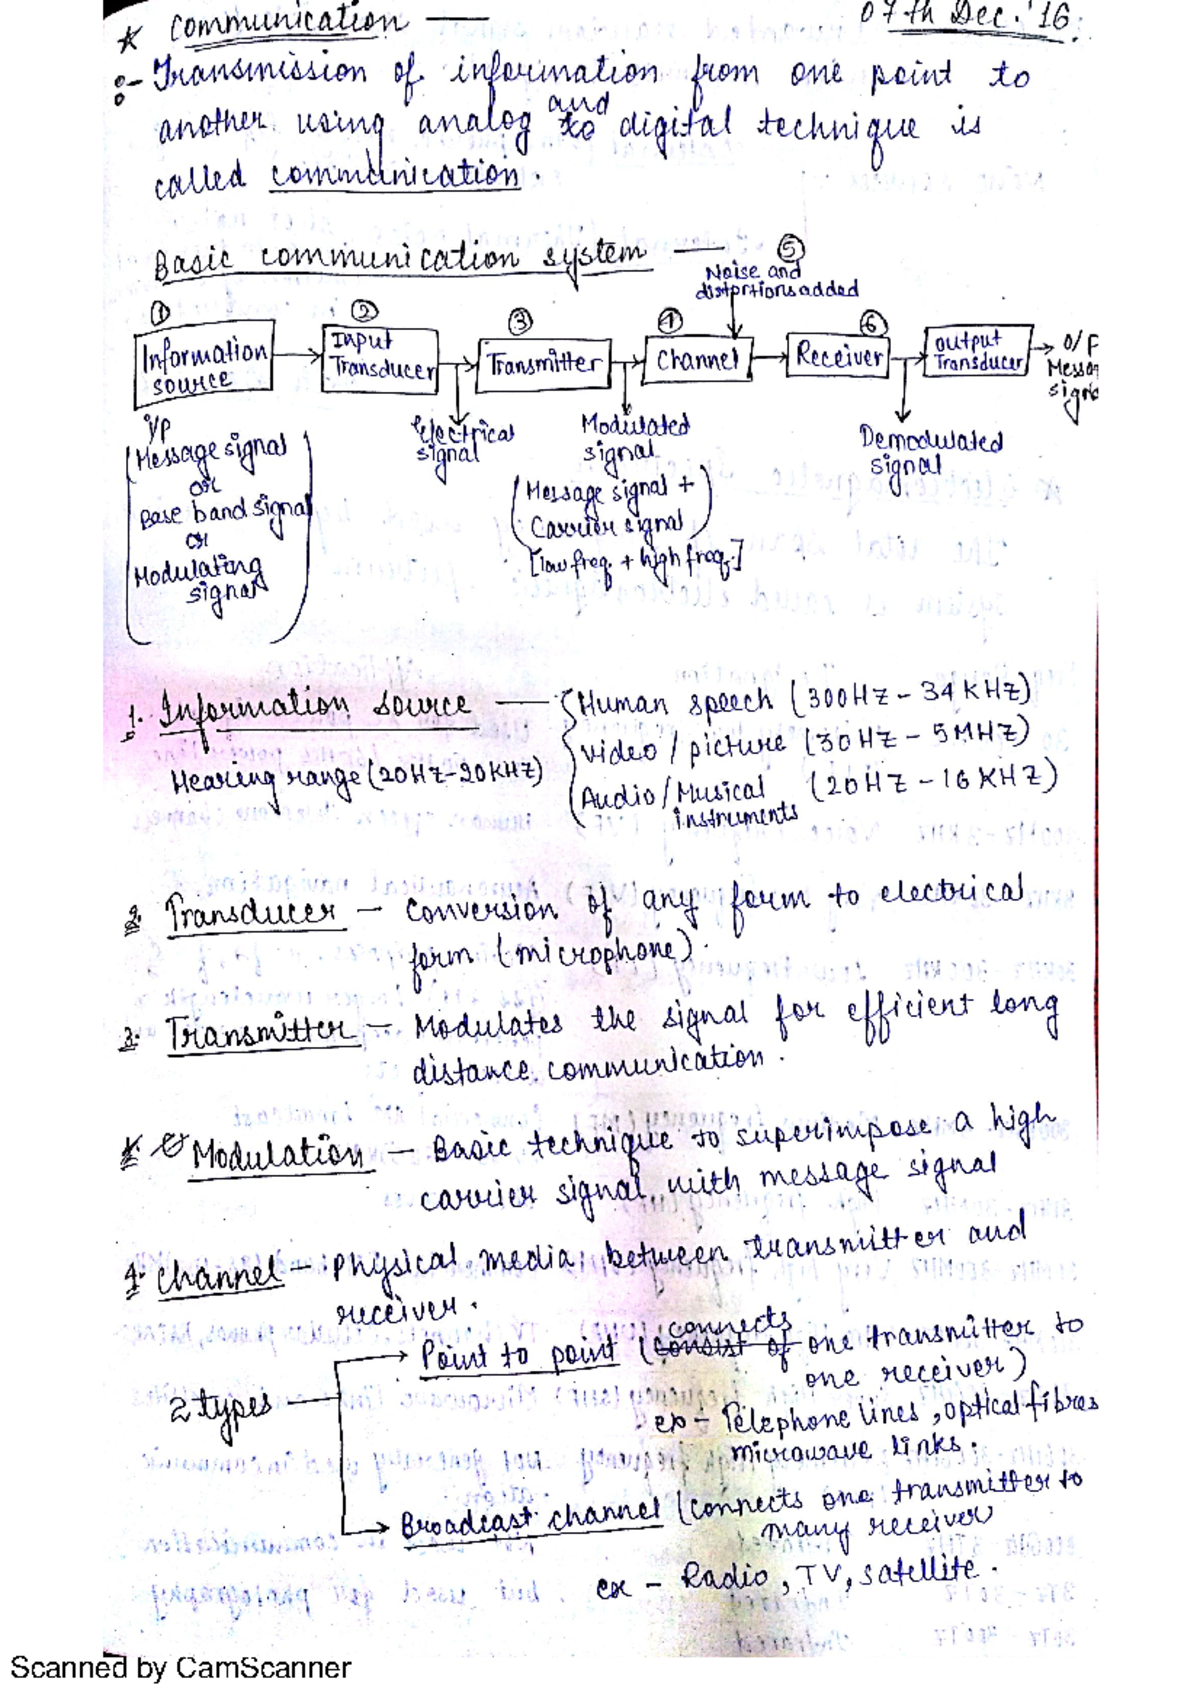 * Communication —
07th Dec.'16:
:- Transmission of information from one point to
another using analog and to digital technique is
called communication.
Basic communication system —
⑤
Noise and
distortions added
① ② ③ ④ ⑥
Information source → Input Transducer → Transmitter → Channel → Receiver → Output Transducer → O/P
Messa
signa
Electrical
signal
Modulated
signal
(Message signal +
Carrier signal)
[low freq. + high freq.]
Demodulated
signal
I/P
(Message signal
or
Base band signal
or
Modulating
signal)
1. Information source — {Human speech (300HZ - 34KHZ)
Video / picture (30HZ - 5MHZ)
Hearing range (20HZ-20KHZ)
Audio/Musical (20HZ - 16KHZ)
instruments
2. Transducer — Conversion of any form to electrical
form (microphone).
3. Transmitter — Modulates the signal for efficient long
distance communication.
* Modulation — Basic technique to superimpose a high
carrier signal with message signal
4. Channel — Physical media between transmitter and
receiver.
2 types
→ Point to point (consist of connects one transmitter to
one receiver)
ex - Telephone lines, optical fibres
microwave links.
→ Broadcast channel (connects one transmitter to
many receiver
ex - Radio, TV, satellite.
Scanned by CamScanner